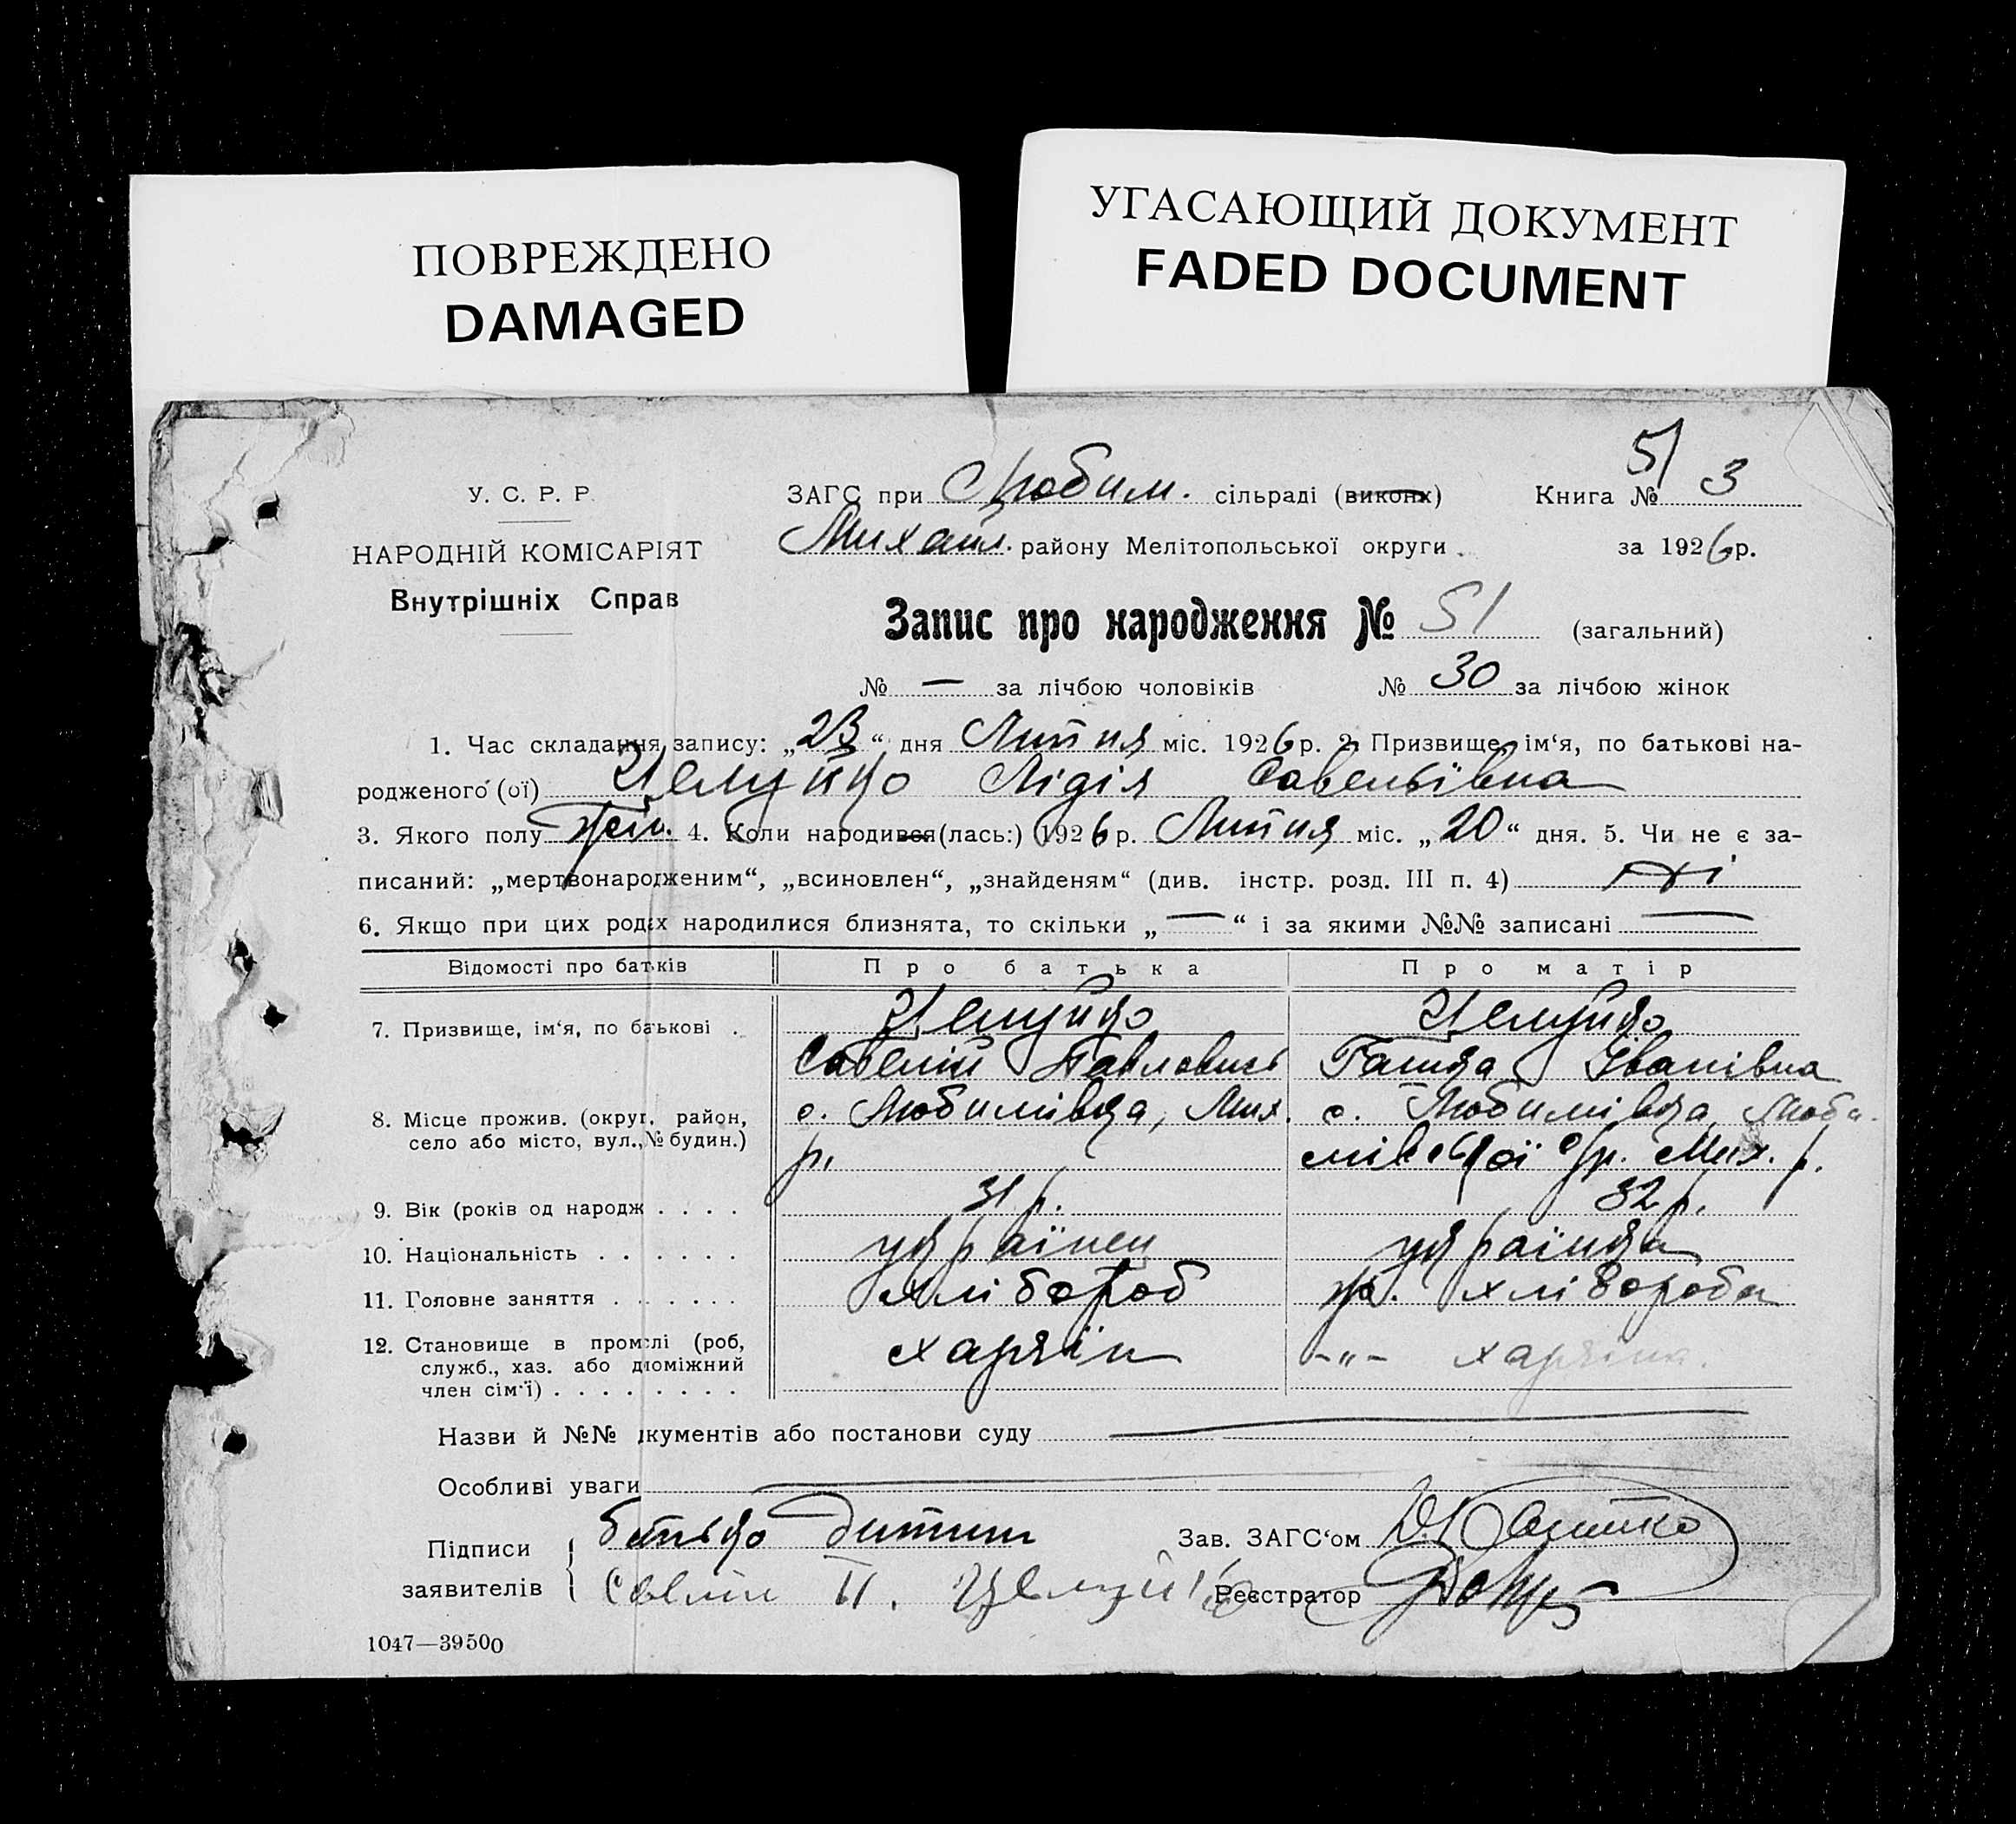 ПОВРЕЖДЕНО
DAMAGED
УГАСАЮЩИЙ ДОКУМЕНТ
FADED DOCUMENT
51
У. С. Р. Р.
НАРОДНІЙ КОМІСАРІЯТ
Внутрішніх Справ
ЗАГС при Любим. сільраді (виконк) Книга № 3
Михайл. району Мелітопольської округи за 1926 р.
Запис про народження № 51 (загальний)
№ — за лічбою чоловіків № 30 за лічбою жінок
1. Час складання запису: „23“ дня Липня міс. 1926 р. 2. Призвище, ім‘я, по батькові на-
родженого (ої) Целуйко Лідія Савельівна
3. Якого полу жін. 4. Коли народився (лась:) 1926 р. Липня міс. „20“ дня. 5. Чи не є за-
писаний: „мертвонародженим“, „всиновлен“, „знайденям“ (див. інстр. розд. III п. 4) Ні
6. Якщо при цих родах народилися близнята, то скільки „—“ і за якими №№ записані —
Відомості про батьків Про батька Про матір
7. Призвище, ім‘я, по батькові . Целуйко Целуйко
Савелій Павлович Ганна Іванівна
8. Місце прожив. (округ, район, с. Любимівка, Мих. с. Любимівка, Люби-
село або місто, вул., № будин.) р. мівської с/р. Мих. р.
9. Вік (років од народж . . . . 31 р. 32 р.
10. Національність . . . . . . українец українка
11. Головне заняття . . . . . . хлібороб ж. хлібороба
12. Становище в промслі (роб, харзяїн -„- харзяїна.
служб., хаз. або домоміжний
член сім‘ї) . . . . . . . .
Назви й №№ документів або постанови суду —
Особливі уваги —
Підписи батько дитини Зав. ЗАГС‘ом
заявителів П. Целуйко Реєстратор
1047—39500